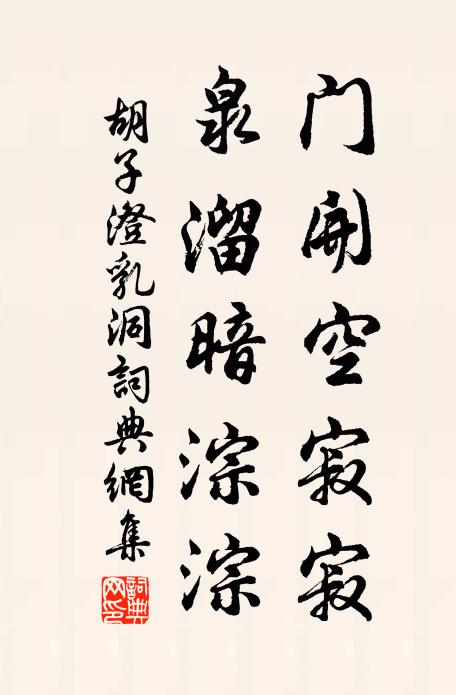 门開空寂寂
泉溜暗淙淙
胡子澄乳洞詞典網集
詞典网印